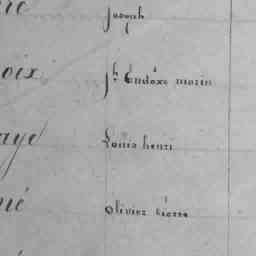 joseph
oix jh. Eudoxe morin
aye Louis henri
né olivier pierre